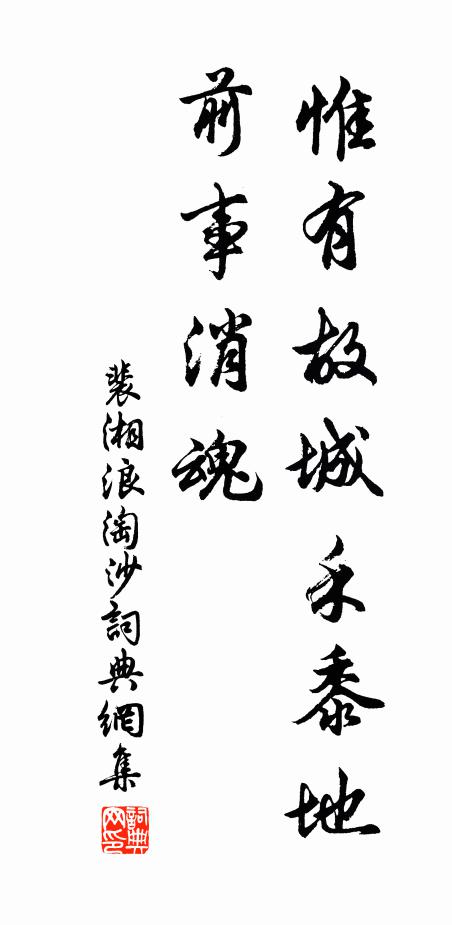 惟有故城禾黍地
前事消魂
裴湘浪淘沙詞典網集
詞典
网印